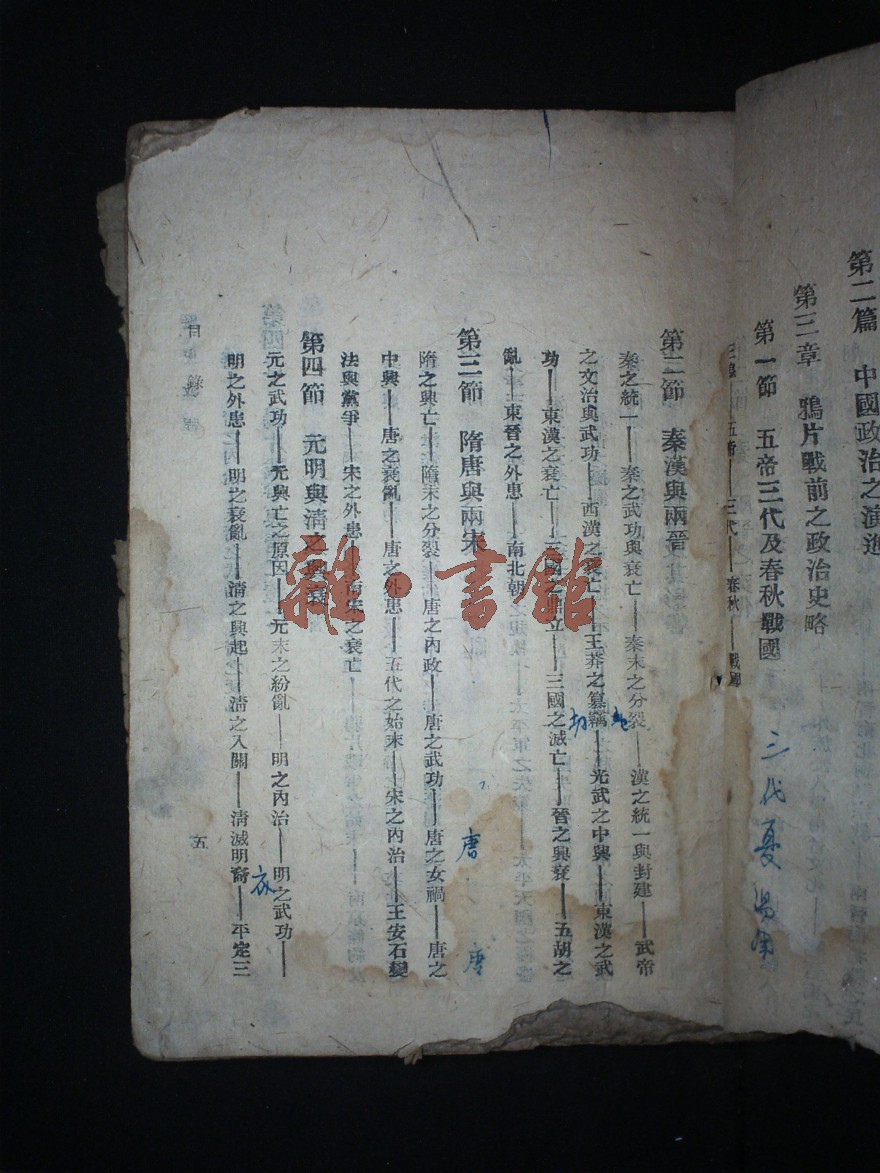 第二篇 中國政治之演進
第三章 鴉片戰前之政治史略
第一節 五帝三代及春秋戰國
三皇——五帝——三代——春秋——戰國
三代夏
第二節 秦漢與兩晉
秦之統一——秦之武功與衰亡——秦末之分裂——漢之統一與封建——武帝
之文治與武功——西漢之衰亡——王莽之篡竊——光武之中興——東漢之武
功——東漢之衰亡——三國之鼎立——三國之滅亡——晉之興衰——五胡之
亂——東晉之外患——南北朝
第三節 隋唐與兩宋
唐
唐
隋之興亡——隋末之分裂——唐之內政——唐之武功——唐之女禍——唐之
中興——唐之衰亂——唐之外患——五代之始末——宋之內治——王安石變
法與黨爭——宋之外患——南宋之衰亡
第四節 元明與清之興衰
元之武功——元興亡之原因——元末之紛亂——明之內治——明之武功——
明之外患——明之衰亂——清之興起——清之入關——清滅明裔——平定三
目錄
五
雜·書館